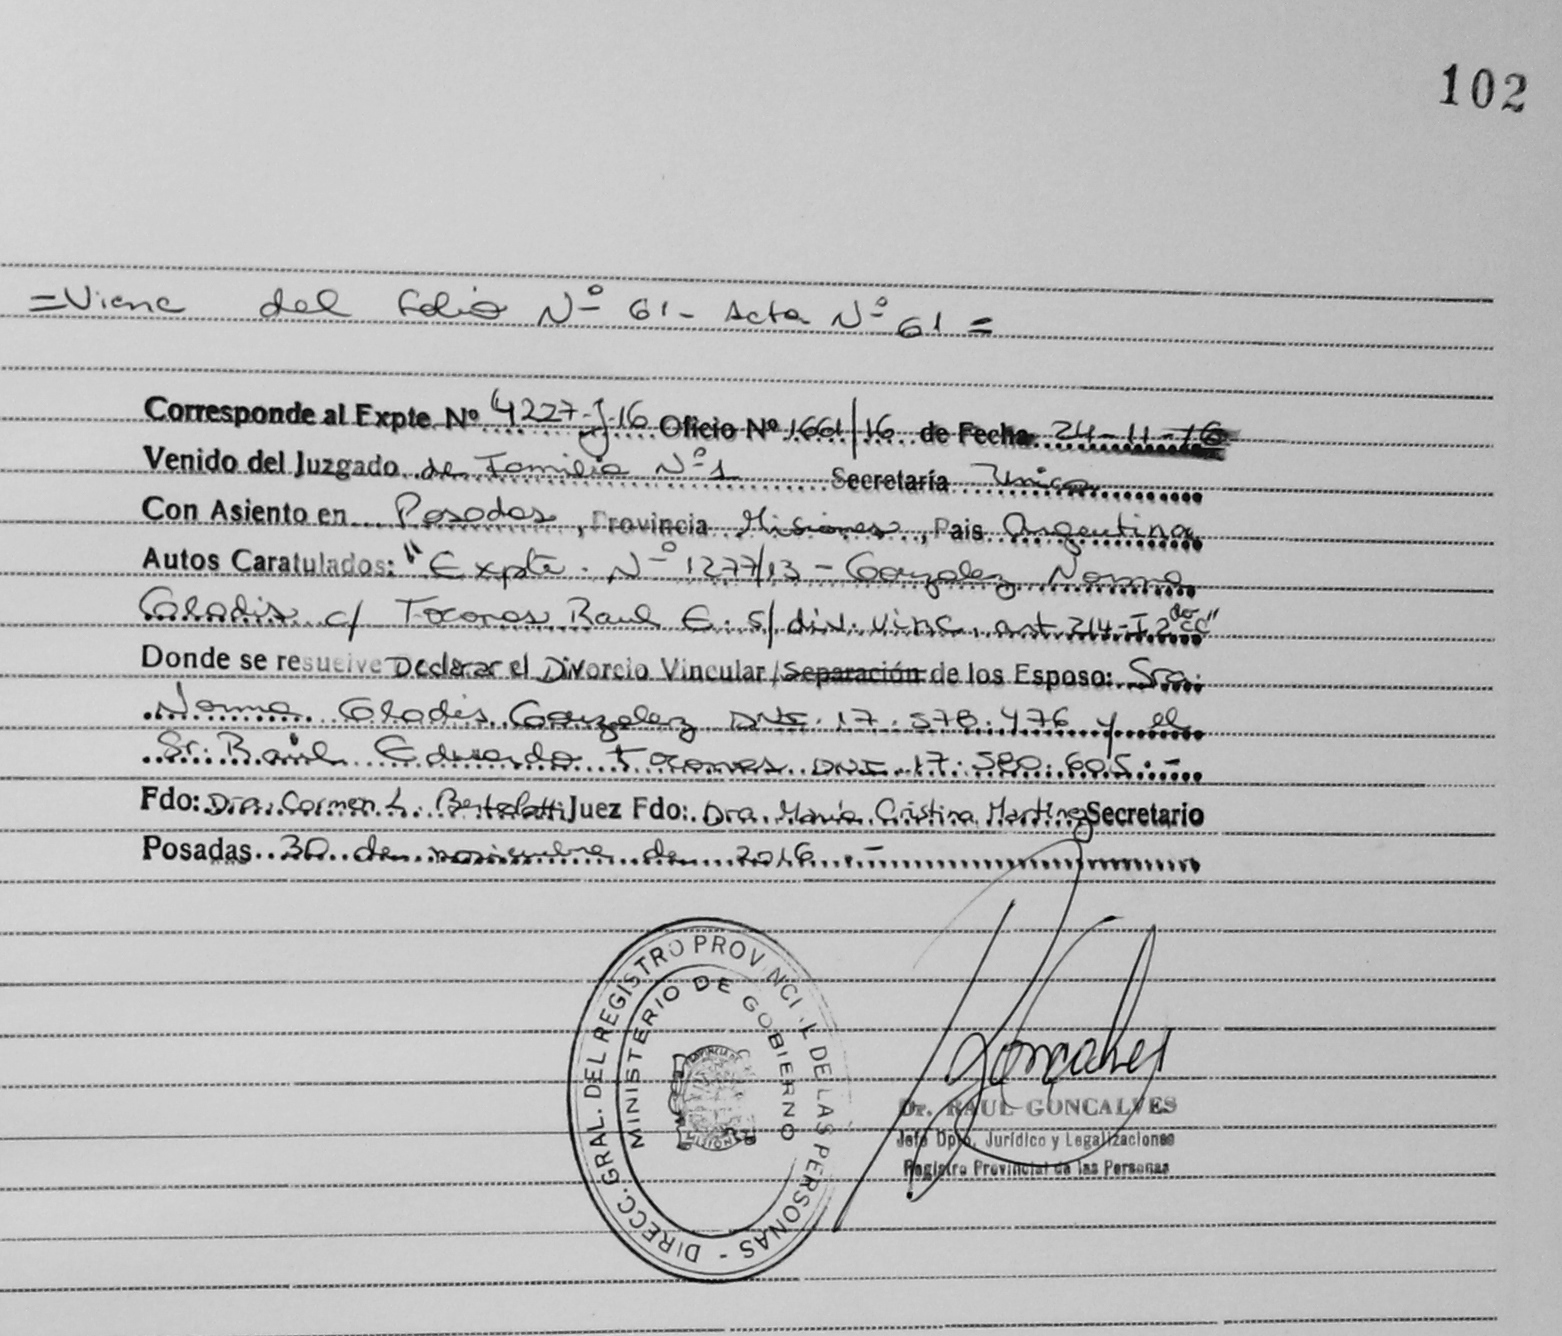 102
=Viene del folio Nº 61- Acta Nº 61=
Corresponde al Expte. Nº 4227-J-16 Oficio Nº 1661/16 de Fecha 24-11-16
Venido del Juzgado de Familia Nº 1 Secretaría Unica
Con Asiento en Posadas, Provincia Misiones, Pais Argentina
Autos Caratulados: "Expte. Nº 1277/13 - Gonzalez Norma
Gladis c/ Tocones Raul E. s/ div. vinc. art. 214-I 2do CC"
Donde se resuelve Declarar el Divorcio Vincular/Separación de los Esposo: Sra.
Norma Gladis Gonzalez DNI. 17.578.476 y el
Sr. Raúl Eduardo DNI 17.580.605.-
Fdo: Dra. Carmen L. Bertolotti Juez Fdo: Dra. María Cristina Martinez Secretario
Posadas 30 de noviembre de 2016.-
DIRECC. GRAL. DEL REGISTRO PROVINCIAL DE LAS PERSONAS -
MINISTERIO DE GOBIERNO
Goncalves
Dr. RAUL GONCALVES
Jefe Dpto. Jurídico y Legalizaciones
Registro Provincial de las Personas